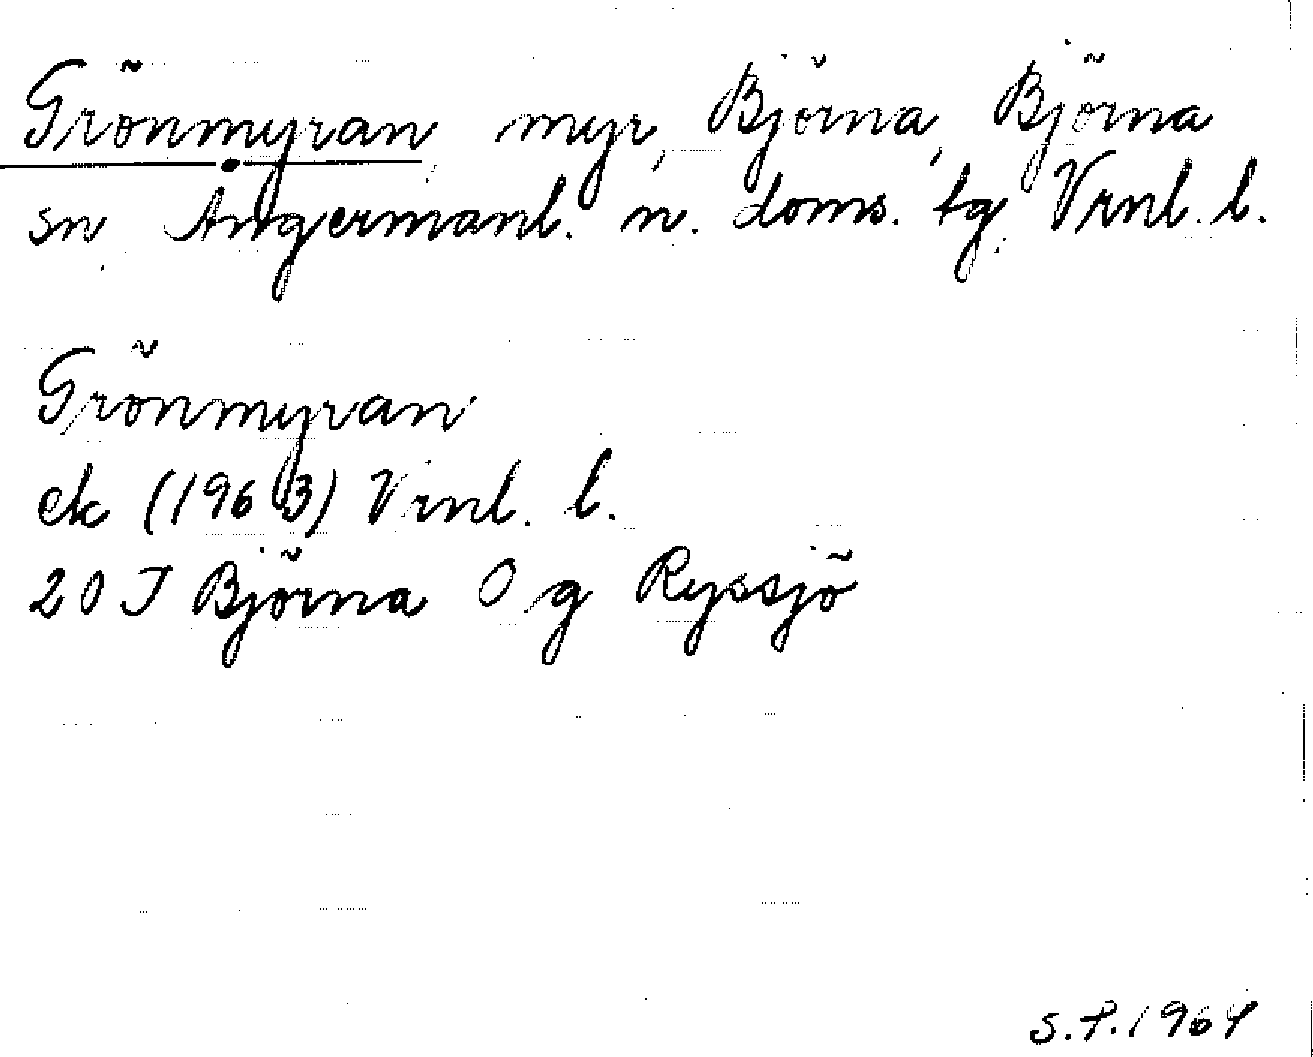 Grönmyran, myr, Björna, Björna
sn, Ångermanl. n. doms. tg, Vrnl. l.
Grönmyran
ek (1963) Vrnl. l.
20 I Björna 0 g Ryssjö
S.P. 1964